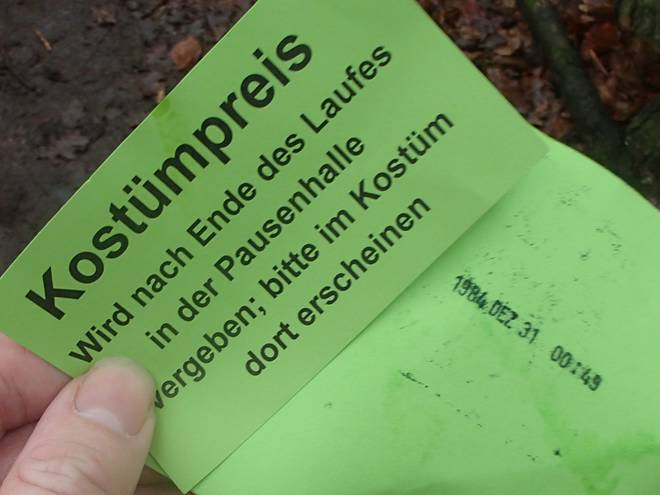 Kostümpreis
Wird nach Ende des Laufes
in der Pausenhalle
vergeben; bitte im Kostüm
dort erscheinen
1984.DEZ 31 00:49